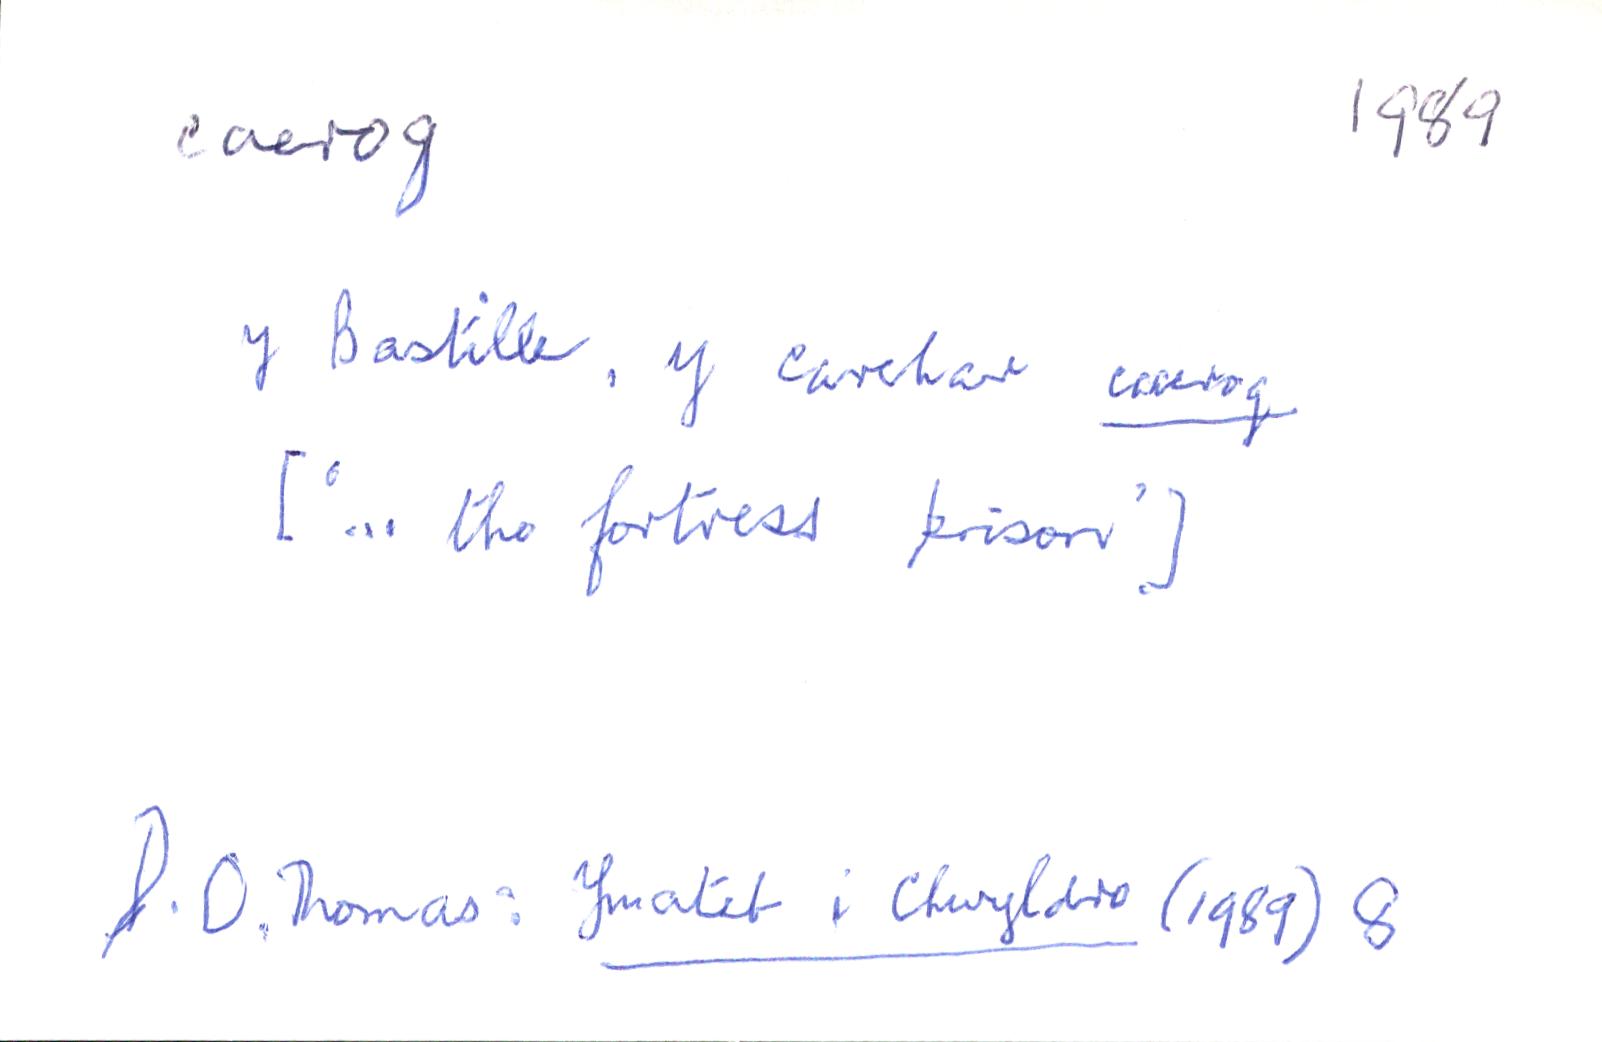 caerog 1989
y Bastille, y carchar caerog
['... the fortress prison']
D. O. Thomas: Ymateb i Chwyldro (1989) 8